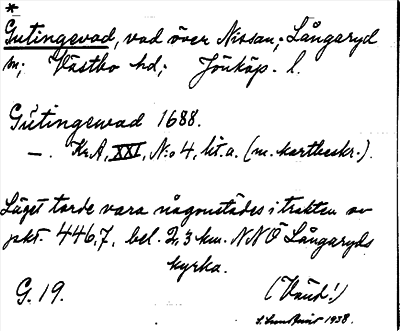 *
Gutingsvad, vad över Nissan; Långaryd
sn; Västbo hd; Jönköp. l.
Gŭtingswad 1688.
—. Kr.A, XXI, N:o 4, lit. a. (m. kartbeskr.).
Läget torde vara någonstädes i trakten av
pkt. 446,7, bel. 2,3 km. NNÖ Långaryds
kyrka.
G. 19. (Vänd!)
1938.